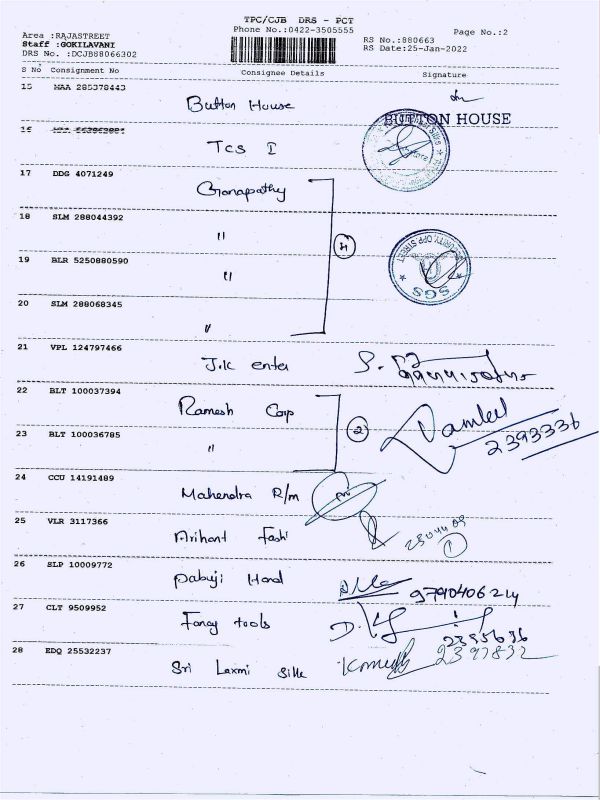 TPC/CJB DRS - PCT
Phone No.:0422-3505555
Page No.:2
Area :RAJASTREET
Staff :GOKILAVANI
DRS No. :DCJB88066302
RS No.:880663
RS Date:25-Jan-2022
S No Consignment No Consignee Details Signature
15 MAA 285378443
Button House
BUTTON HOUSE
16
TCS I
17 DDG 4071249
Ganapathy
18 SLM 288044392
"
4
19 BLR 5250880590
"
SGS
20 SLM 288068345
"
21 VPL 124797466
J.K enter
22 BLT 100037394
Ramesh Corp
2
23 BLT 100036785
"
2393336
24 CCU 14191489
Mahendra R/m
25 VLR 3117366
Arihant Fashi
1
26 SLP 10009772
Pabuji Hand
9790406214
27 CLT 9509952
Fancy tools
28 EDQ 25532237
Sri Laxmi Silk
2397832